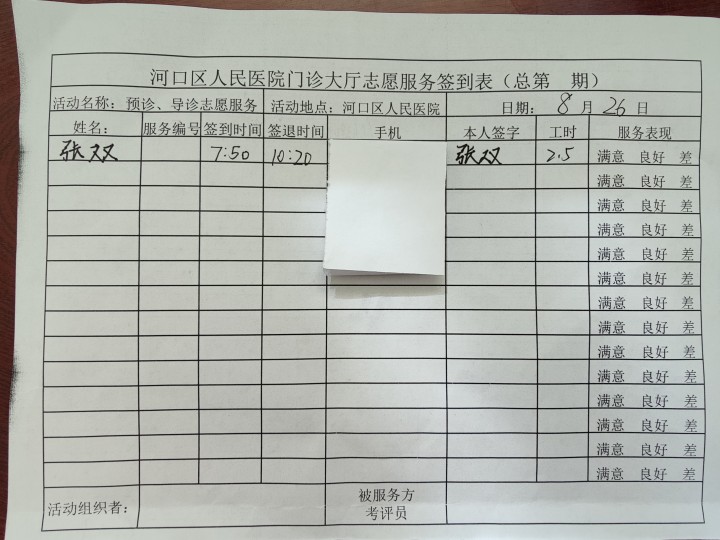 河口区人民医院门诊大厅志愿服务签到表（总第 期）
活动名称：预诊、导诊志愿服务 活动地点：河口区人民医院 日期： 8 月 26 日
姓名： 服务编号 签到时间 签退时间 手机 本人签字 工时 服务表现
张双 7:50 10:20 张双 2.5 满意 良好 差
满意 良好 差
满意 良好 差
满意 良好 差
满意 良好 差
满意 良好 差
满意 良好 差
满意 良好 差
满意 良好 差
满意 良好 差
满意 良好 差
满意 良好 差
满意 良好 差
满意 良好 差
活动组织者： 被服务方
考评员